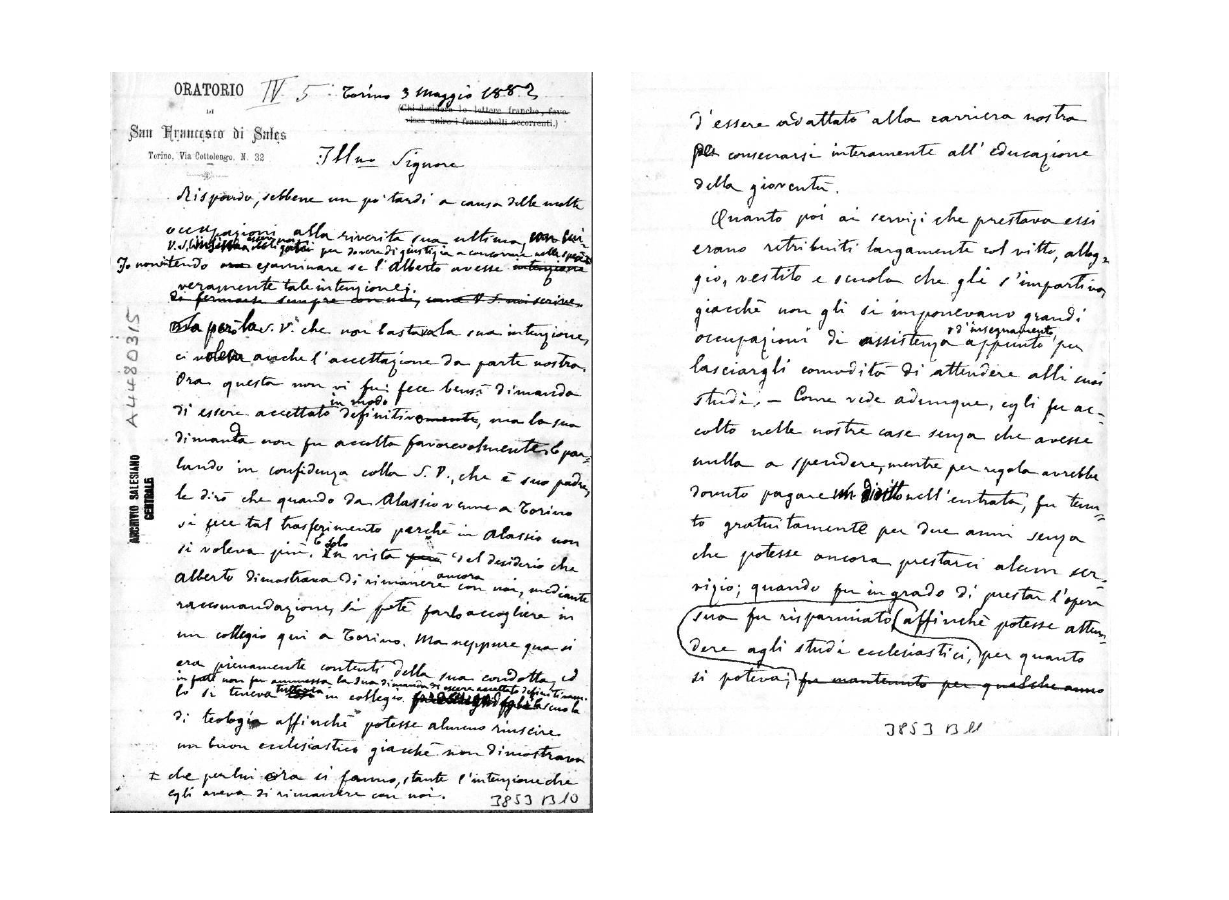 ORATORIO
DI
San Francesco di Sales
Torino, Via Cottolengo, N. 32
IV. 5
Torino 3 Maggio 1883
(Chi desidera le lettere franche, favo-
risca unire i francobolli occorrenti.)
Ill.mo Signore
Rispondo, sebbene un po' tardi a causa delle molte
occupazioni alla riverita sua ultima,
V. S. per dovere di giustizia a concorrere nelle spese
Io non intendo esaminare se l'Alberto avesse intenzione
veramente tale intenzione;
di fermarsi sempre con noi, come V. S. mi scrive
ma però la S. V. che non basta la sua intenzione,
ci voleva anche l'accettazione da parte nostra.
Ora questa non vi fu; fece bensì dimanda
in modo
di essere accettato definitivamente, ma la sua
dimanda non fu accolta favorevolmente; e par-
lando in confidenza colla S. V., che è suo padre,
le dirò che quando da Alassio venne a Torino
si fece tal trasferimento perchè in Alassio non
si voleva più. E solo in vista però del desiderio che
ancora
Alberto dimostrava di rimanere con noi, mediante
raccomandazione, si potè farlo accogliere in
un collegio qui a Torino. Ma neppure qua si
era pienamente contenti della sua condotta, ed
in fatti non fu ammessa la sua dimanda di essere accettato definitivamente.
lo si teneva tuttavia in collegio la scuola
di teologia affinchè potesse almeno riuscire
un buon ecclesiastico giacchè non dimostrava
che per lui ora si fanno, stante l'intenzione che
egli aveva di rimanere con noi.
3853 B 10
A4480315
ARCHIVIO SALESIANO
CENTRALE
d'essere adattato alla carriera nostra
per consecrarsi interamente all'educazione
della gioventù.
Quanto poi ai servizi che prestava essi
erano retribuiti largamente col vitto, allog-
gio, vestito e scuola che gli s'impartiva,
giacchè non gli si imponevano grandi
e d'insegnamento,
occupazioni di assistenza appunto per
lasciargli comodità di attendere alli suoi
studi. — Come vede adunque, egli fu ac-
colto nelle nostre case senza che avesse
nulla a spendere, mentre per regola avrebbe
dovuto pagare nell'entrata, fu tenu-
to gratuitamente per due anni senza
che potesse ancora prestarci alcun ser-
vigio; quando fu in grado di prestar l'opera
sua fu risparmiato affinchè potesse atten-
dere agli studi ecclesiastici, per quanto
si poteva; fu mantenuto per qualche anno
3853 B 11